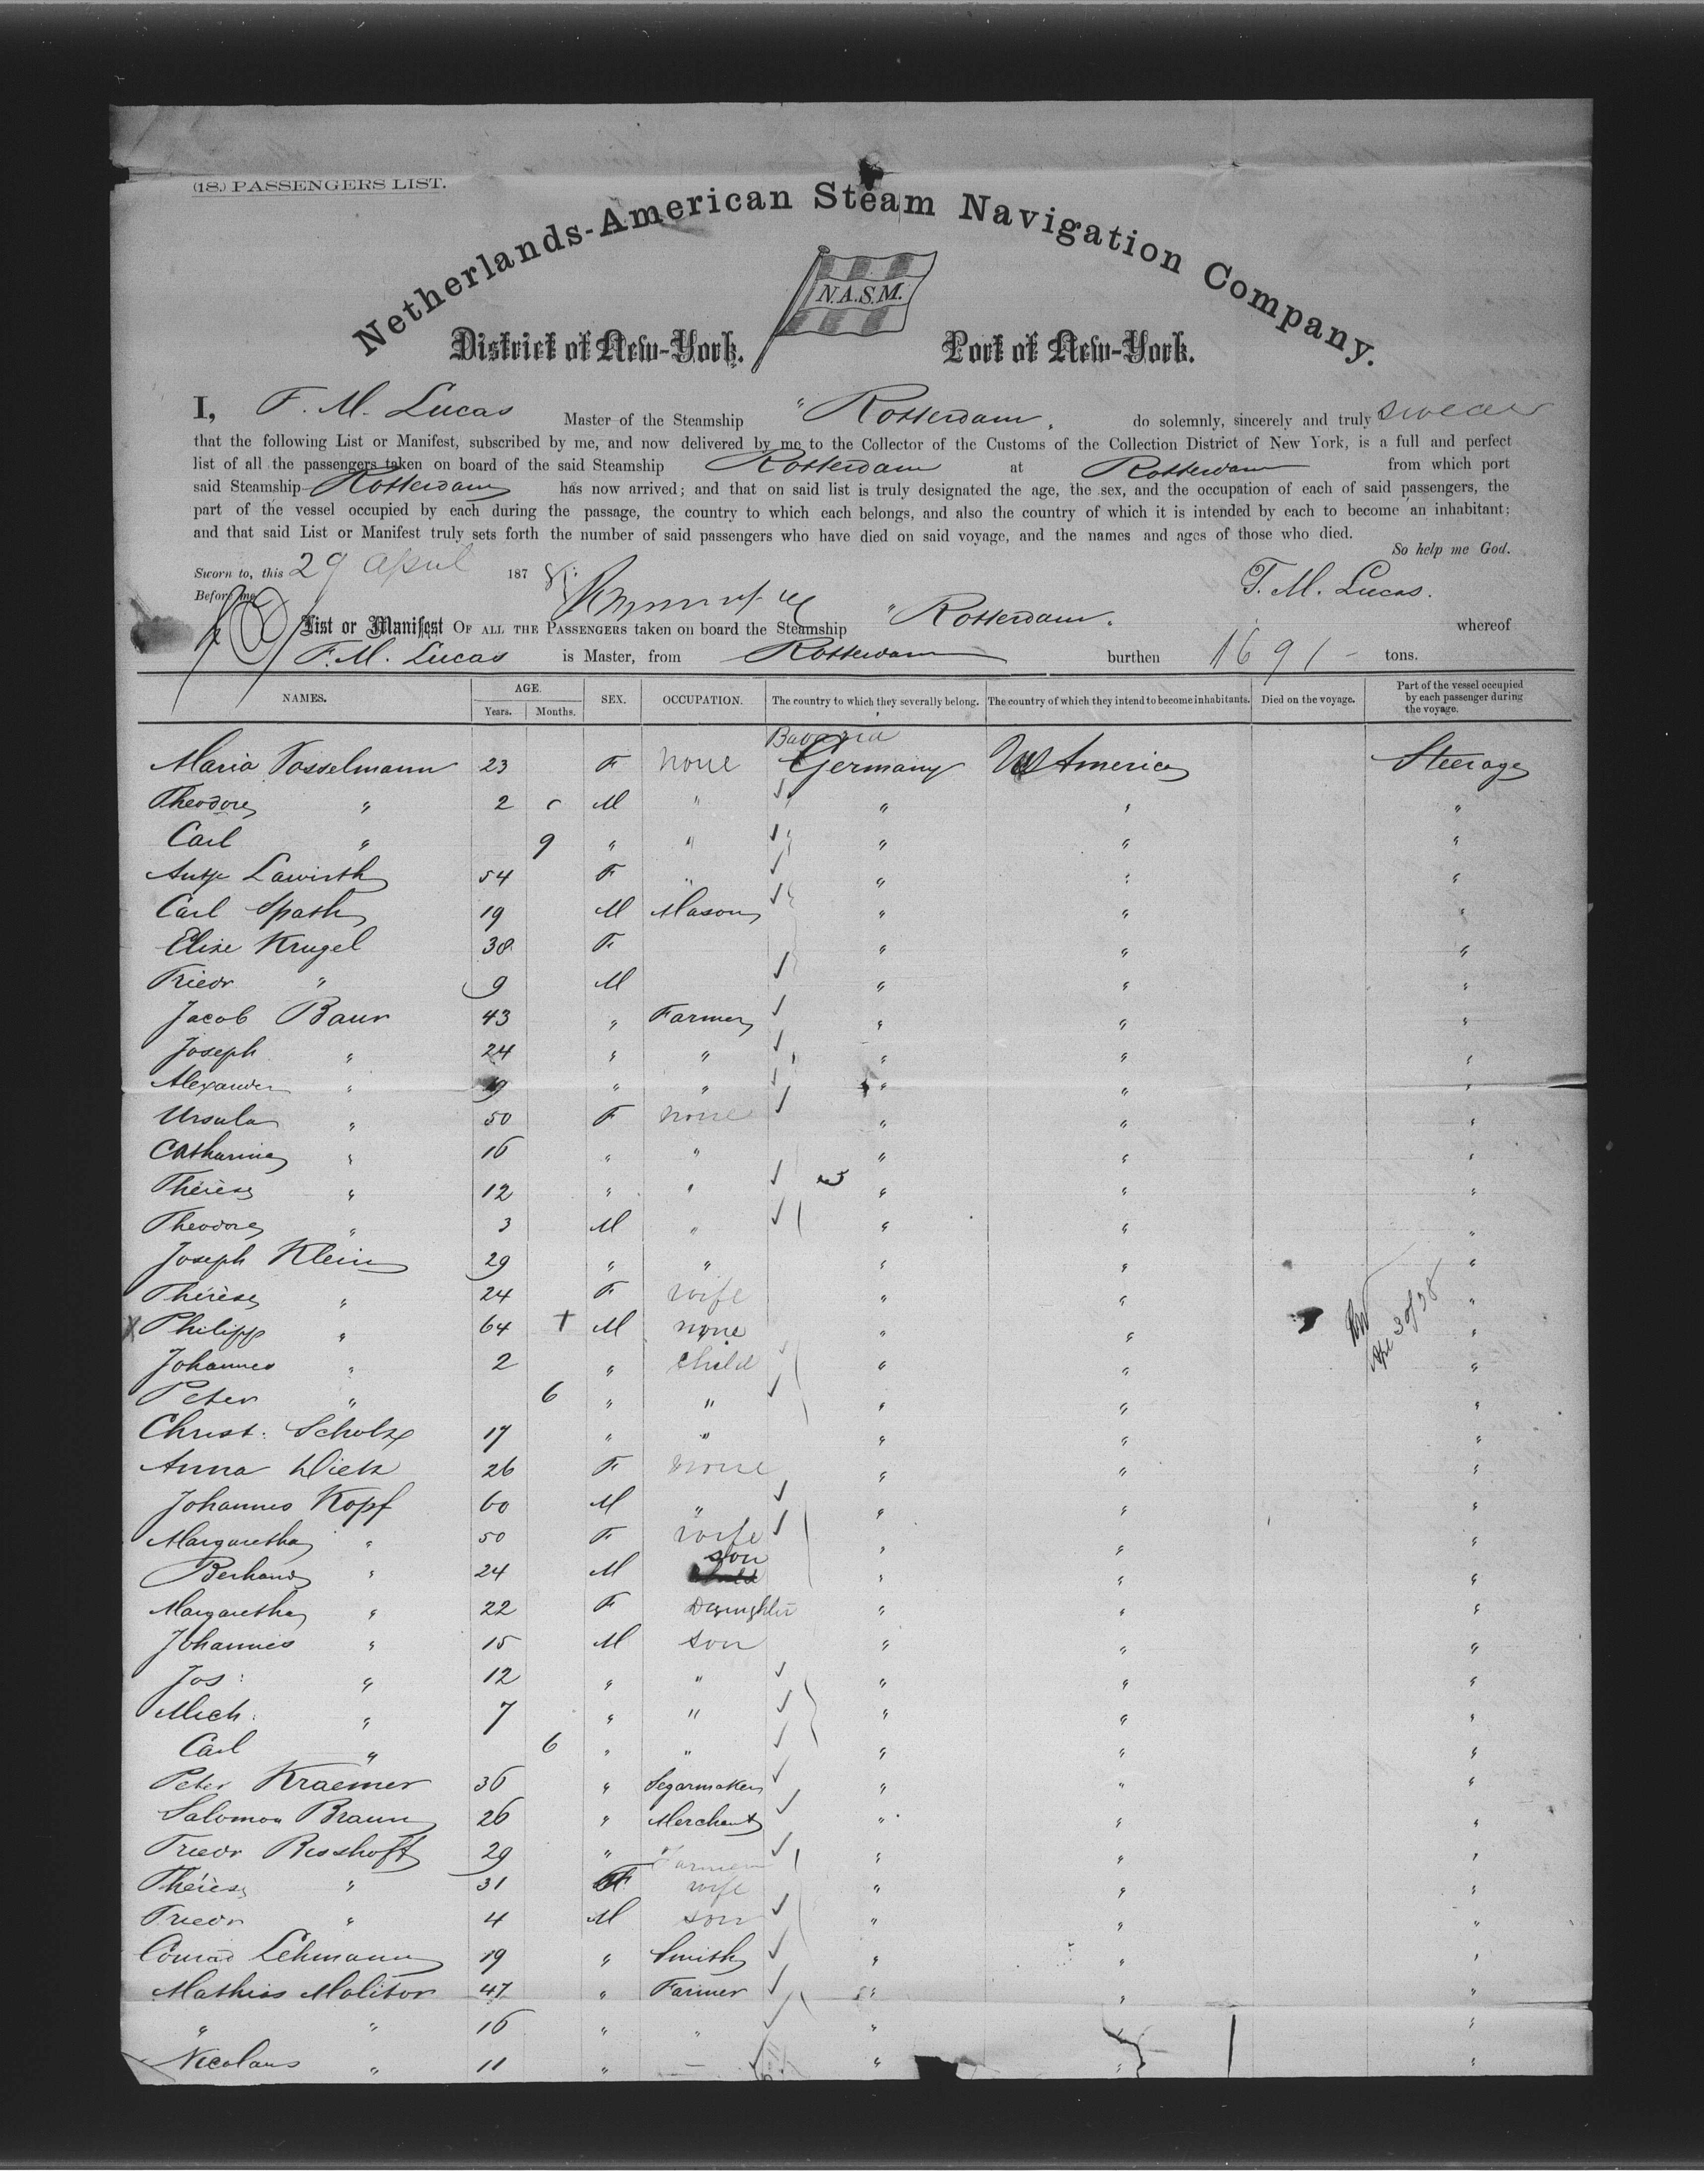 (18.) PASSENGERS LIST.
Netherlands-American Steam Navigation Company.
N.A.S.M.
District of New-York. Port of New-York.
I, F. M. Lucas Master of the Steamship " Rotterdam. do solemnly, sincerely and truly swear
that the following List or Manifest, subscribed by me, and now delivered by me to the Collector of the Customs of the Collection District of New York, is a full and perfect
list of all the passengers taken on board of the said Steamship Rotterdam at Rotterdam from which port
said Steamship Rotterdam has now arrived; and that on said list is truly designated the age, the sex, and the occupation of each of said passengers, the
part of the vessel occupied by each during the passage, the country to which each belongs, and also the country of which it is intended by each to become an inhabitant;
and that said List or Manifest truly sets forth the number of said passengers who have died on said voyage, and the names and ages of those who died.
So help me God.
Sworn to, this 29 April 1878
Before me
F. M. Lucas.
List or Manifest OF ALL THE PASSENGERS taken on board the Steamship " Rotterdam. whereof
F. M. Lucas is Master, from Rotterdam burthen 1691 - tons.
NAMES. AGE. Years. Months. SEX. OCCUPATION. The country to which they severally belong. The country of which they intend to become inhabitants. Died on the voyage. Part of the vessel occupied by each passenger during the voyage.
Bavaria
Maria Vosselmann 23 F none Germany America Steerage
Theodore " 2 M " " " "
Carl " 9 " " " " "
Antje Lawirth 54 F " " " "
Carl Spath 19 M Mason " " "
Elise Krugel 38 F " " "
Friedr " 9 M " " "
Jacob Baur 43 " Farmer " " "
Joseph " 24 " " " " "
Alexander " 19 " " " " "
Ursula " 50 F none " " "
Catharina " 16 " " " " "
Thérèse " 12 " " " " "
Theodore " 3 M " " " "
Joseph Klein 29 " " " " "
Thérèse " 24 F wife " " "
X Philipp " 64 + M none " " "
Johannes " 2 " child " " "
Peter " 6 " " " " "
Christ. Scholz 17 " " " " "
Anna Dietz 26 F none " " "
Johannes Kopf 60 M " " " "
Margaretha " 50 F wife " " "
Berhard " 24 M son " " "
Margaretha " 22 F Daughter " " "
Johannes " 15 M son " " "
Jos: " 12 " " " " "
Mich: " 7 " " " " "
Carl " 6 " " " " "
Peter Kraemer 36 " Segarmaker " " "
Salomon Braun 26 " Merchant " " "
Friedr Bisshoft 29 " Farmer " " "
Thérèse " 31 F wife " " "
Friedr " 4 M son " " "
Conrad Lehmann 19 " Smith " " "
Mathias Molitor 47 " Farmer " " "
" " 16 " " " " "
Nicolaus " 11 " " " "